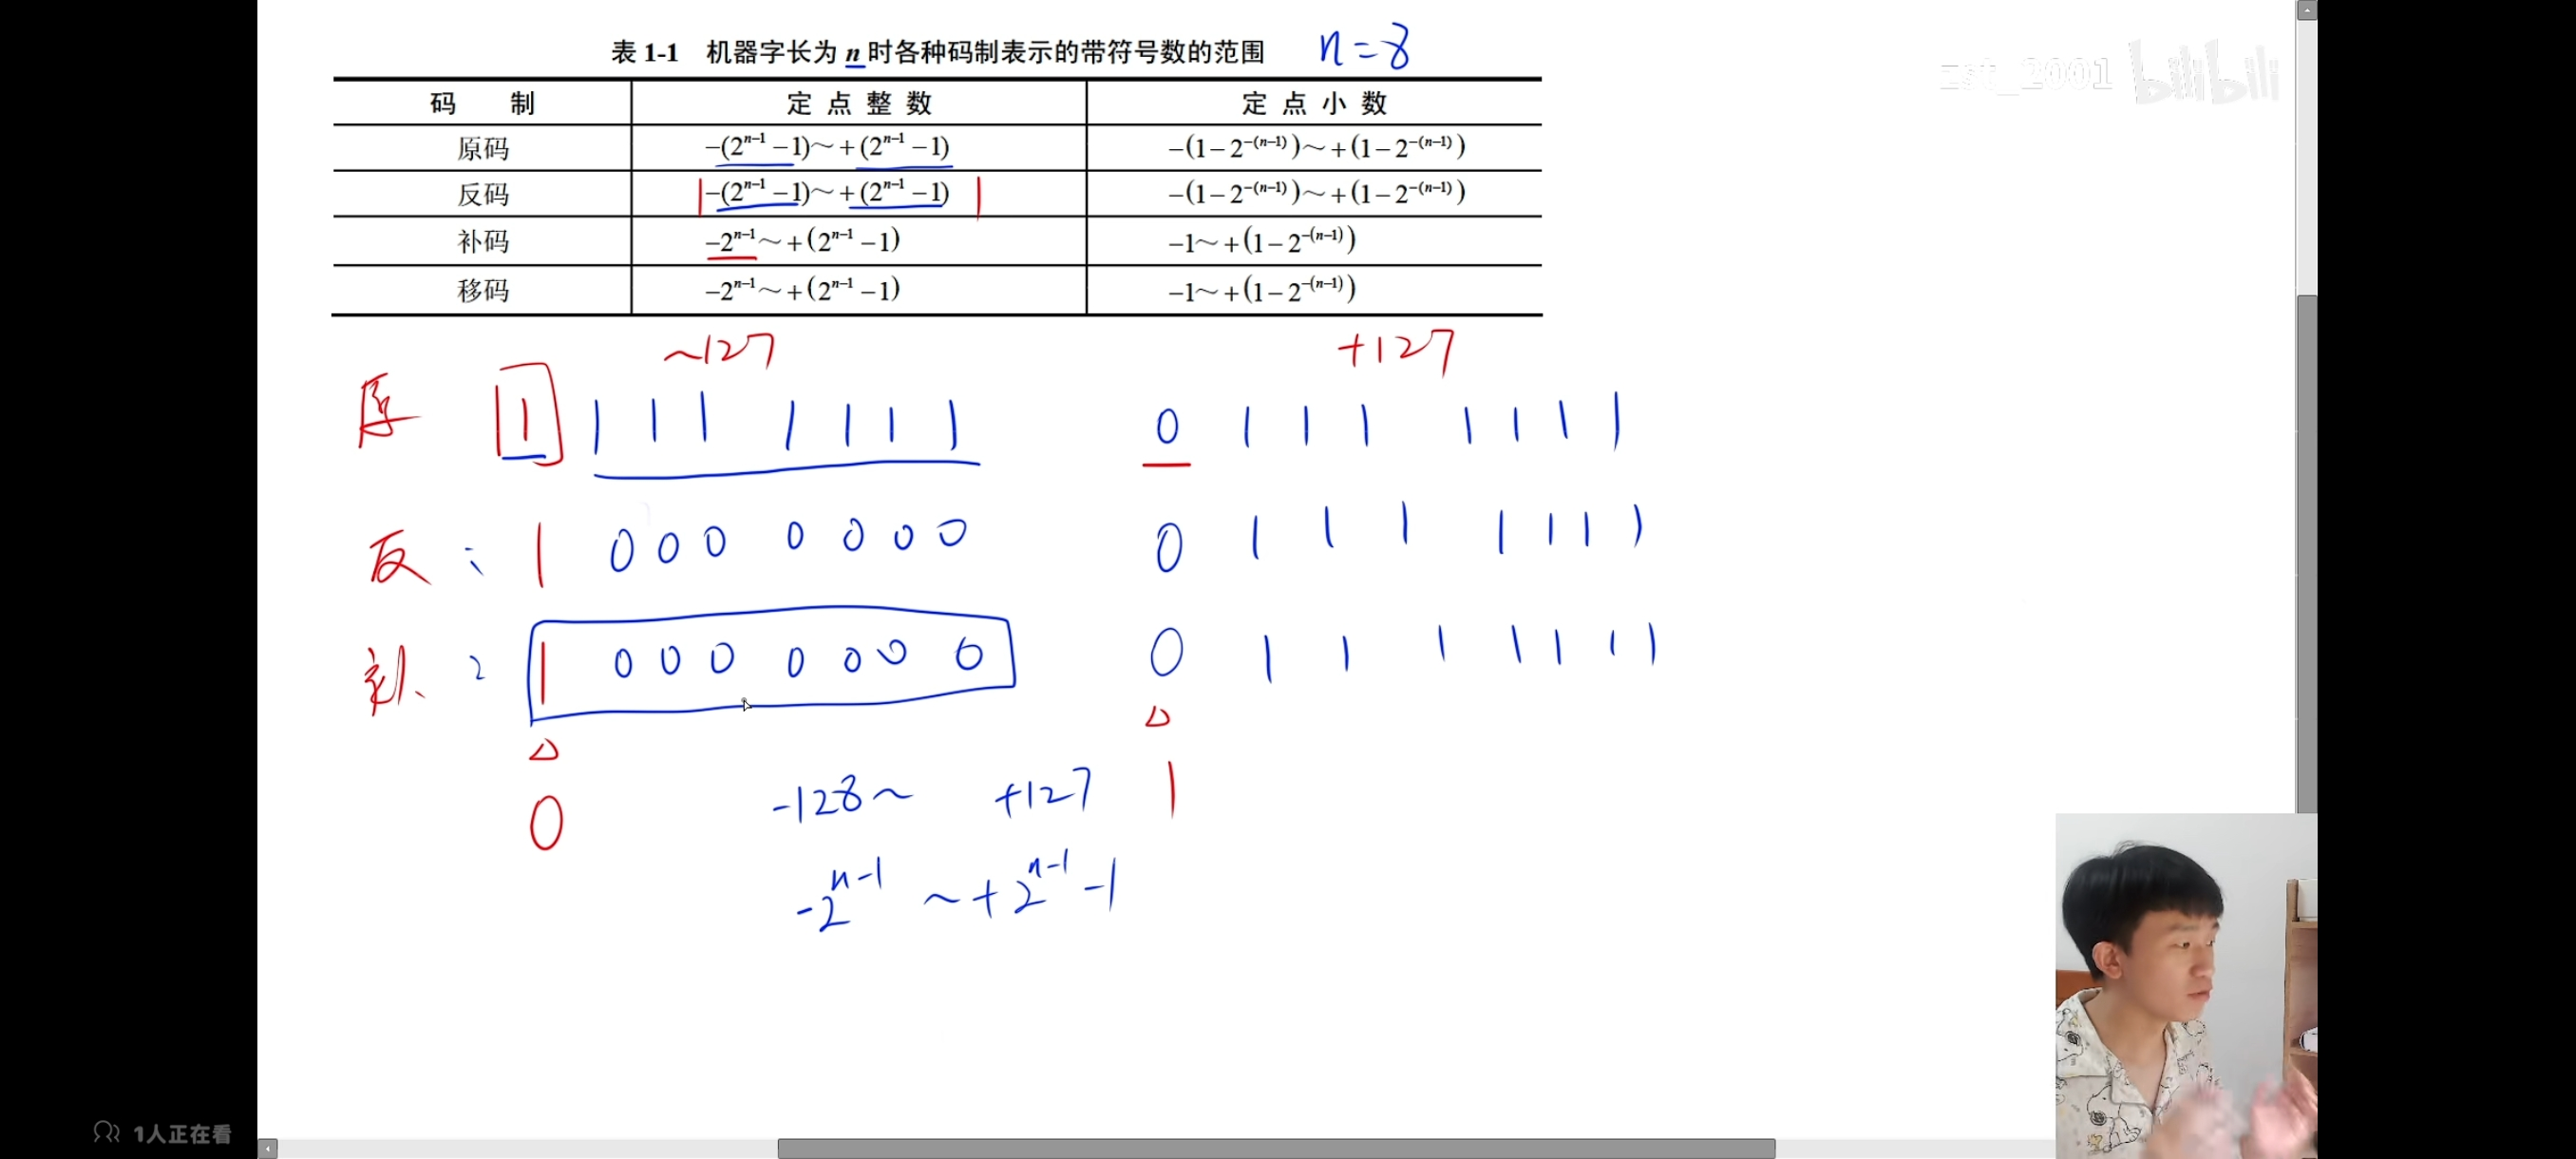 表 1-1 机器字长为 n 时各种码制表示的带符号数的范围 n=8
zst_2001 bilibili
码 制 定点整数 定点小数
原码 −(2ⁿ⁻¹−1)～+(2ⁿ⁻¹−1) −(1−2⁻⁽ⁿ⁻¹⁾)～+(1−2⁻⁽ⁿ⁻¹⁾)
反码 −(2ⁿ⁻¹−1)～+(2ⁿ⁻¹−1) −(1−2⁻⁽ⁿ⁻¹⁾)～+(1−2⁻⁽ⁿ⁻¹⁾)
补码 −2ⁿ⁻¹～+(2ⁿ⁻¹−1) −1～+(1−2⁻⁽ⁿ⁻¹⁾)
移码 −2ⁿ⁻¹～+(2ⁿ⁻¹−1) −1～+(1−2⁻⁽ⁿ⁻¹⁾)
~127 +127
原 1 1 1 1 1 1 1 1 0 1 1 1 1 1 1 1
反: 1 0 0 0 0 0 0 0 0 1 1 1 1 1 1 1
补: 1 0 0 0 0 0 0 0 0 1 1 1 1 1 1 1
0 -128～ +127 1
-2ⁿ⁻¹ ～ +2ⁿ⁻¹-1
1人正在看